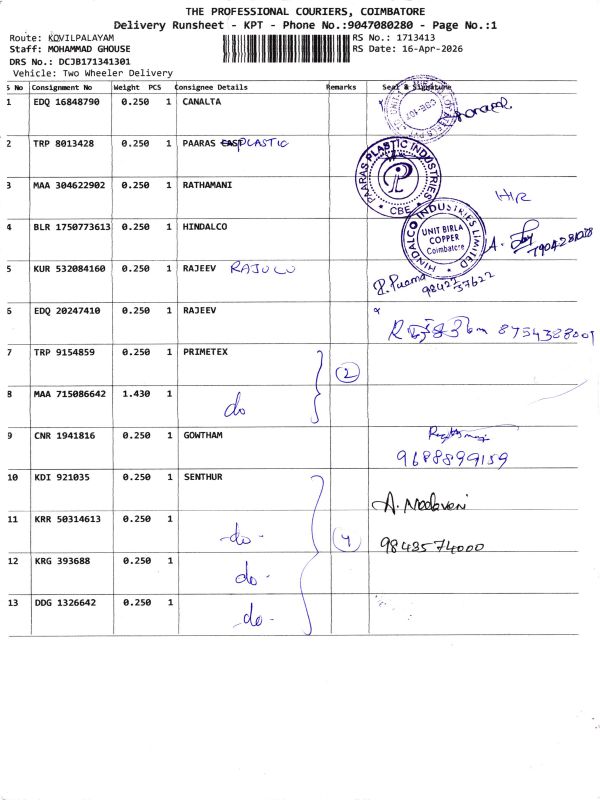 THE PROFESSIONAL COURIERS, COIMBATORE
Delivery Runsheet - KPT - Phone No.:9047080280 - Page No.:1
Route: KOVILPALAYAM
RS No.: 1713413
Staff: MOHAMMAD GHOUSE
RS Date: 16-Apr-2026
DRS No.: DCJB171341301
Vehicle: Two Wheeler Delivery
S No Consignment No Weight PCS Consignee Details Remarks Seal & Signature
1 EDQ 16848790 0.250 1 CANALTA
2 TRP 8013428 0.250 1 PAARAS PLASTIC
PAARAS PLASTIC INDUSTRIES
CBE
3 MAA 304622902 0.250 1 RATHAMANI
4 BLR 1750773613 0.250 1 HINDALCO
HINDALCO INDUSTRIES LIMITED
UNIT BIRLA
COPPER
Coimbatore
7904281028
5 KUR 532084160 0.250 1 RAJEEV
98422 37622
6 EDQ 20247410 0.250 1 RAJEEV
8754328001
7 TRP 9154859 0.250 1 PRIMETEX
2
8 MAA 715086642 1.430 1 do
9 CNR 1941816 0.250 1 GOWTHAM
9688899159
10 KDI 921035 0.250 1 SENTHUR
11 KRR 50314613 0.250 1 -do-
4
9843574000
12 KRG 393688 0.250 1 do-
13 DDG 1326642 0.250 1 do-